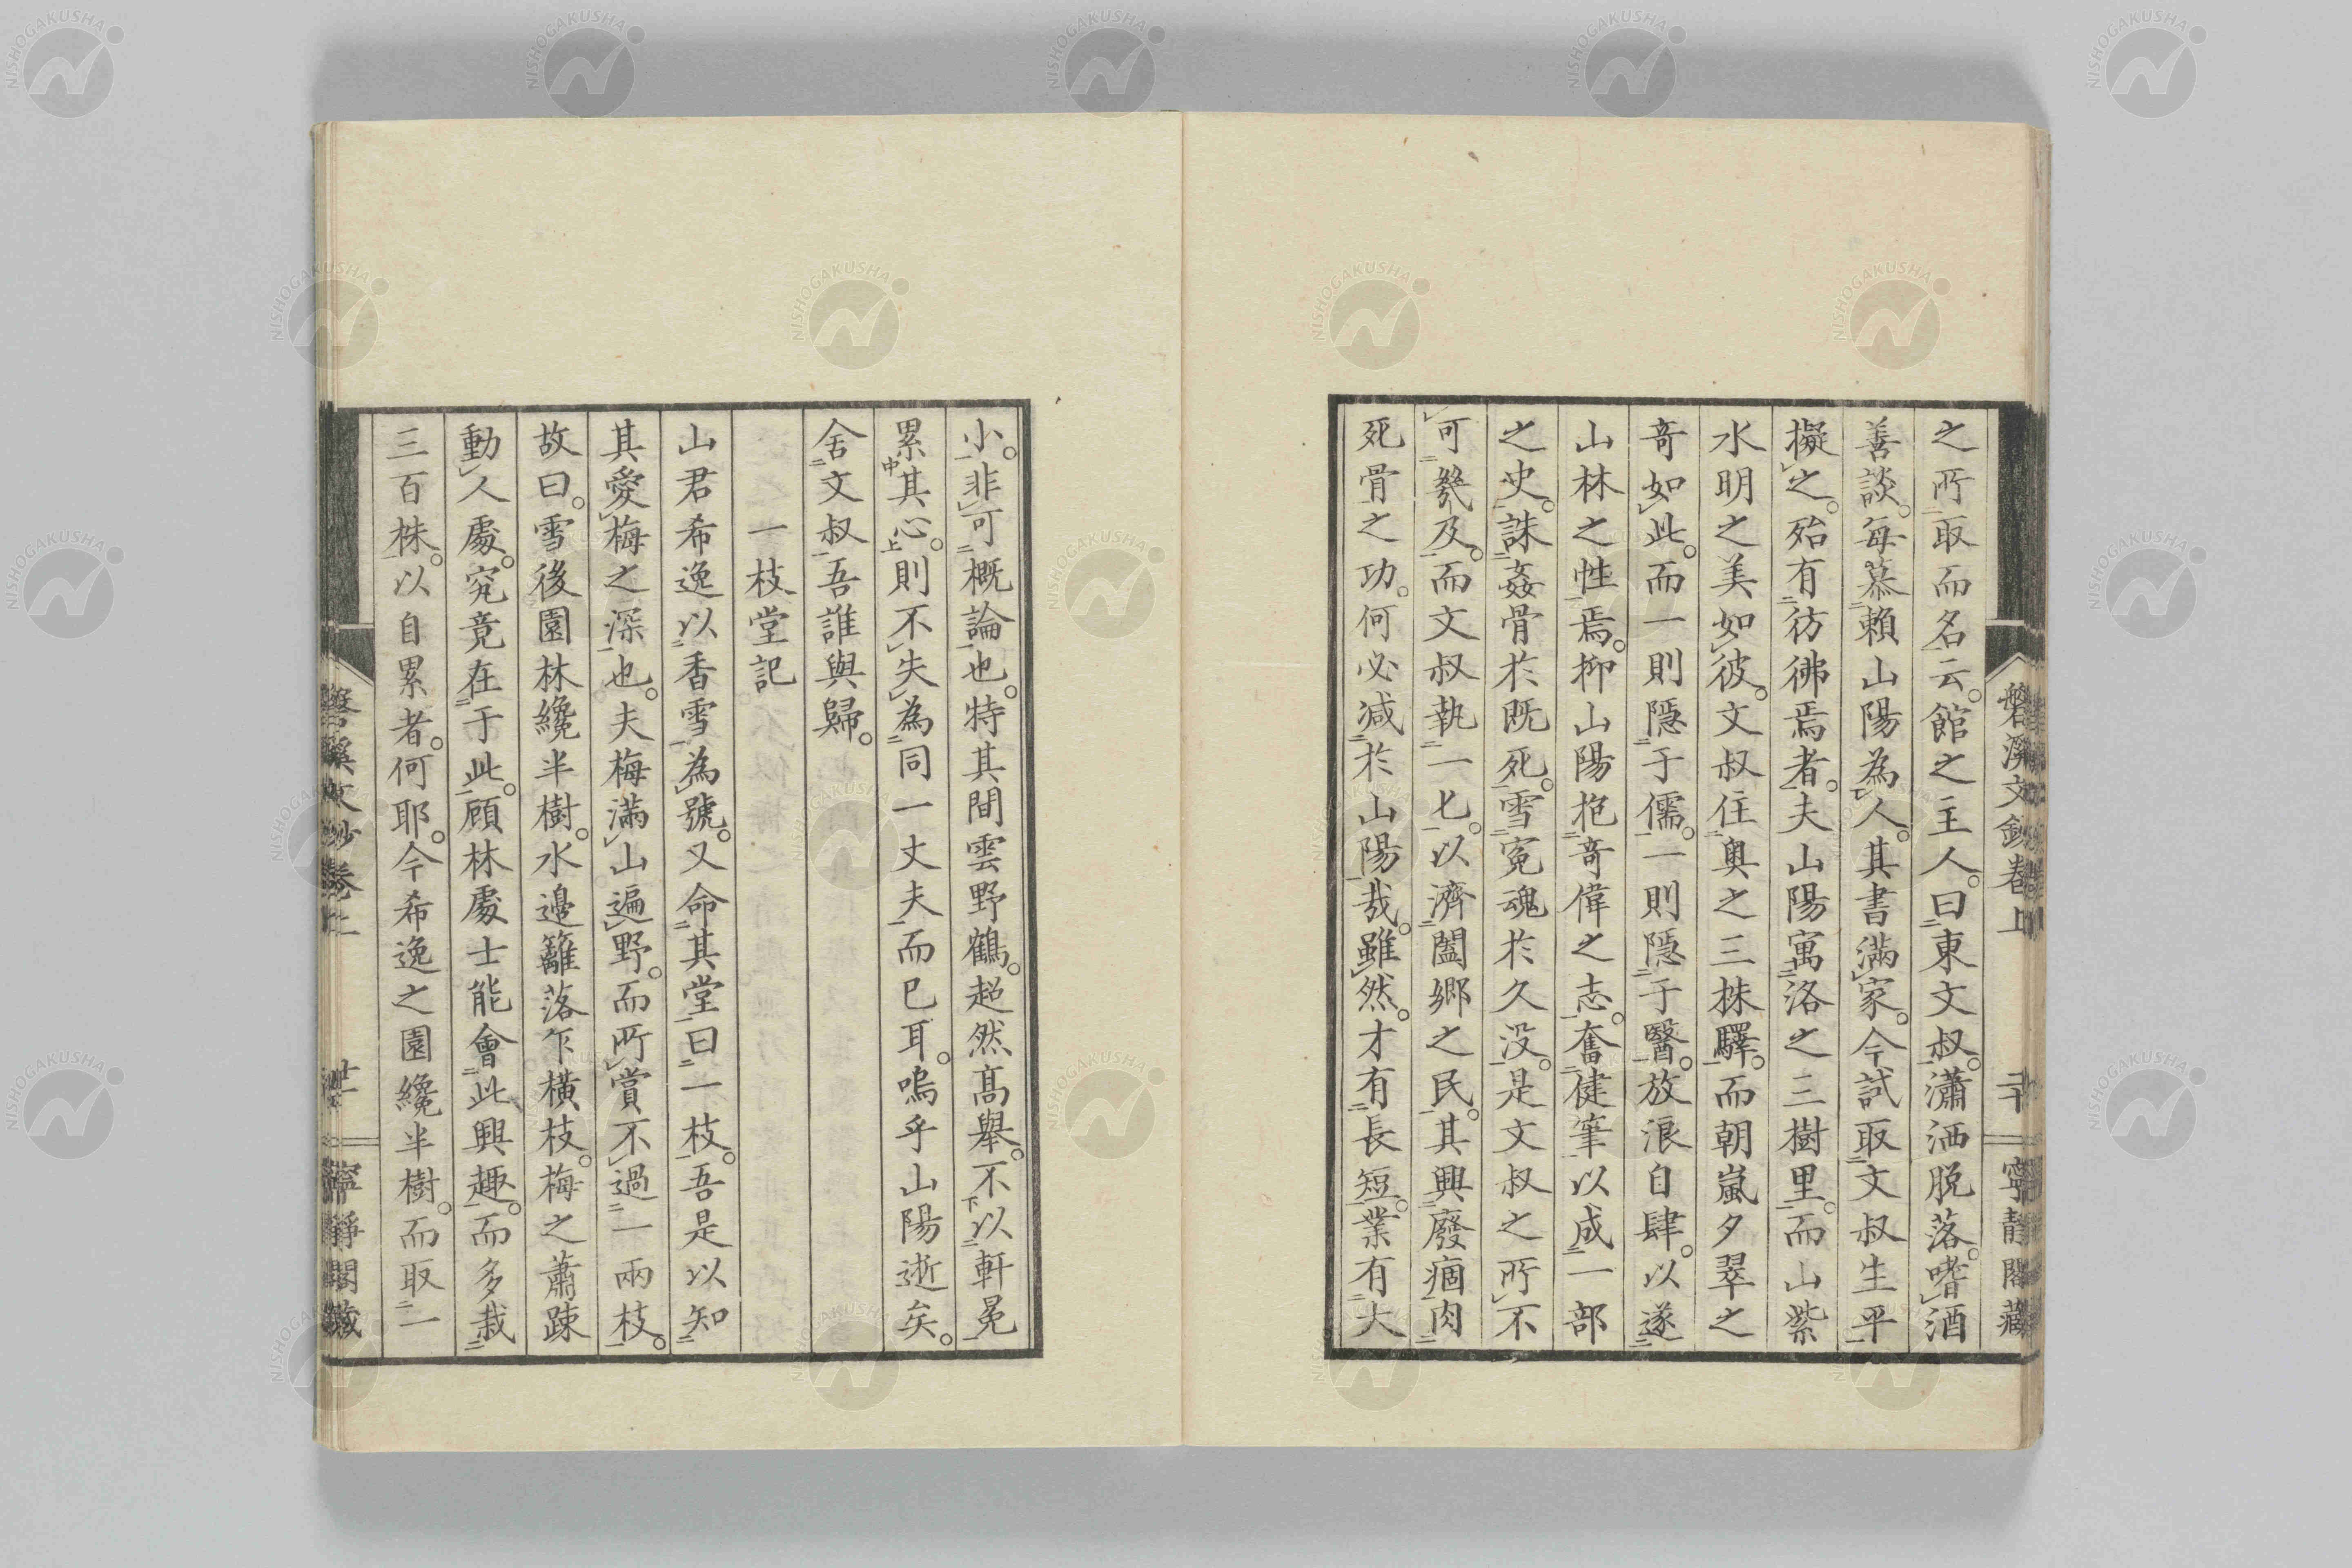 磐溪文鈔卷上 二十 寧靜閣藏
之所取而名云。館之主人。曰東文叔。瀟洒脱落。嗜酒
善談。每慕賴山陽為人。其書滿家。今試取文叔生平
擬之。殆有彷彿焉者。夫山陽寓洛之三樹里。而山紫
水明之美如彼。文叔住奥之三株驛。而朝嵐夕翠之
奇如此。而一則隱于儒。一則隱于醫。放浪自肆。以遂
山林之性焉。抑山陽抱奇偉之志。奮健筆以成一部
之史。誅姦骨於既死。雪冤魂於久没。是文叔之所不
可幾及。而文叔執一匕。以濟闔郷之民。其興廢痼肉
死骨之功。何必减於山陽哉。雖然。才有長短。業有大
小。非可概論也。特其間雲野鶴。超然高舉。不以軒冕
累其心。則不失為同一丈夫而已耳。嗚乎山陽逝矣。
舍文叔吾誰與歸。
一枝堂記
山君希逸以香雪為號。又命其堂曰一枝。吾是以知
其愛梅之深也。夫梅滿山遍野。而所賞不過一兩枝。
故曰。雪後園林纔半樹。水邊籬落乍横枝。梅之蕭踈
動人處。究竟在于此。顧林處士能會此興趣。而多栽
三百株。以自累者。何耶。今希逸之園纔半樹。而取一
磐溪文鈔卷上 廿一 寧靜閣藏